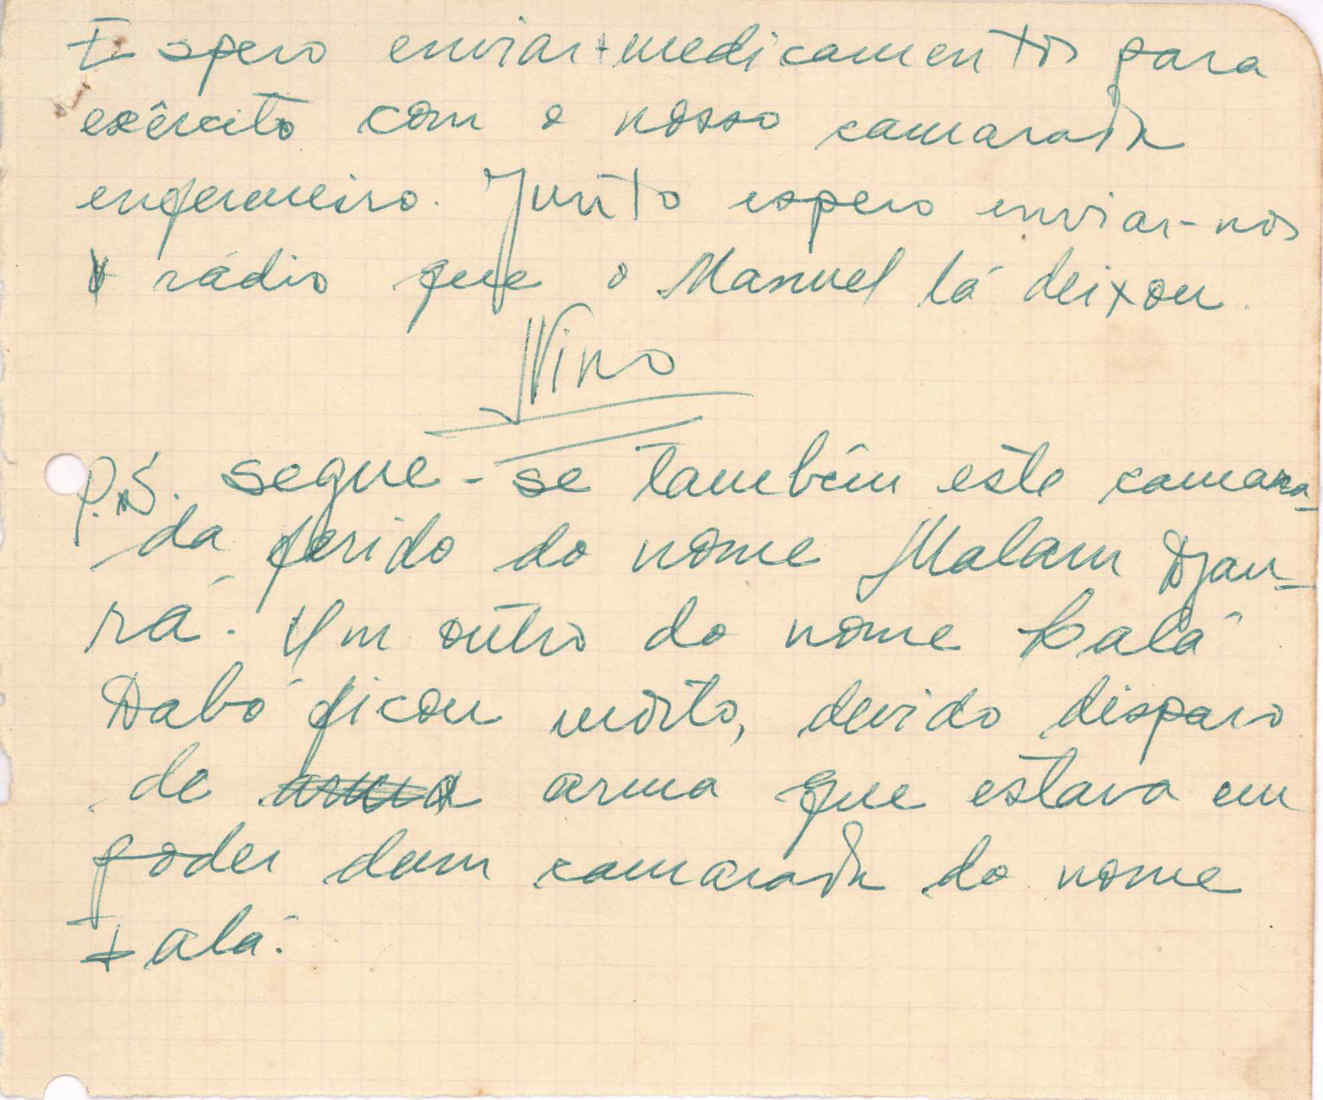 Espero enviar + medicamentos para
exército com o nosso camarada
enfermeiro. Junto espero enviar-nos
rádio que o Manuel lá deixou.
Nino
P.S. segue-se também este camara-
da ferido do nome Malam Djau-
rá. Um outro do nome Calá
Dabó ficou morto, devido disparo
de arma que estava em
poder dum camarada do nome